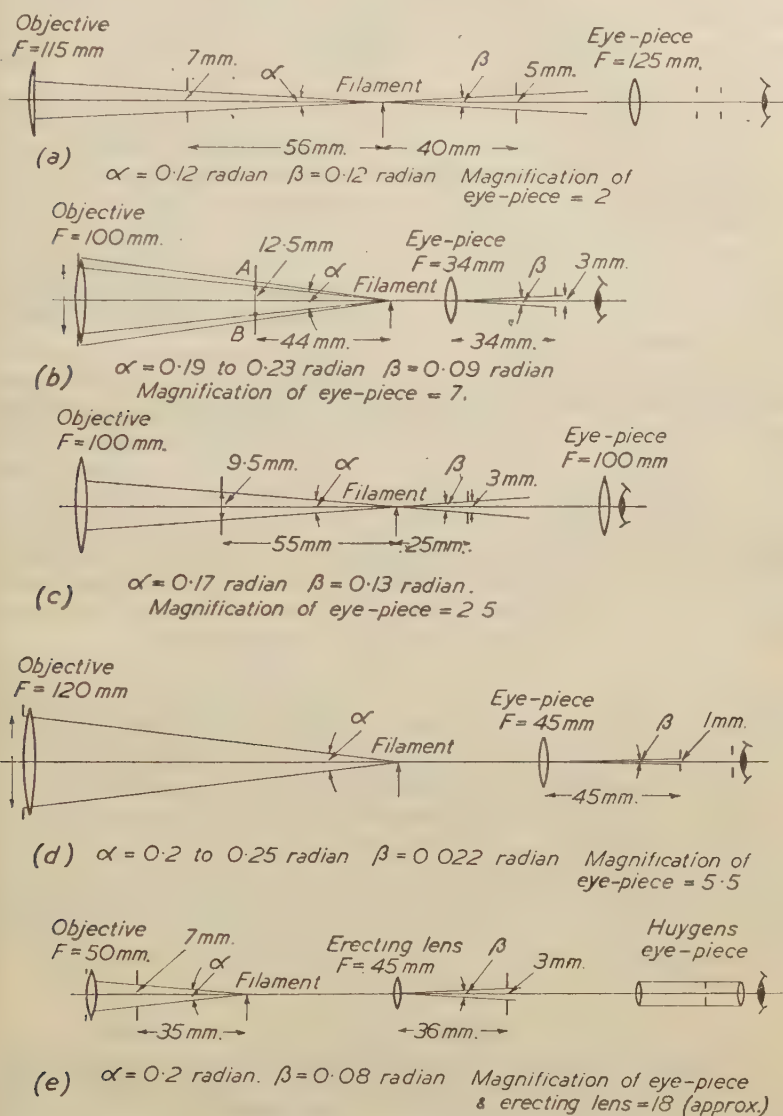 Objective
F=115mm
7mm.
α
Filament
β
5mm.
Eye-piece
F=125mm.
56mm.
40mm
(a)
α=0·12 radian β=0·12 radian Magnification of
eye-piece = 2
Objective
F=100mm.
A
12·5mm
α
Filament
B
44mm.
Eye-piece
F=34mm
β
3mm.
34mm
(b)
α=0·19 to 0·23 radian β=0·09 radian
Magnification of eye-piece = 7.
Objective
F=100mm.
9·5mm.
α
Filament
β
3mm.
Eye-piece
F=100mm
55mm
25mm
(c)
α=0·17 radian β=0·13 radian.
Magnification of eye-piece = 2 5
Objective
F=120mm
α
Filament
Eye-piece
F=45mm
β
1mm.
45mm.
(d) α=0·2 to 0·25 radian β=0 022 radian Magnification of
eye-piece = 5·5
Objective
F=50mm.
7mm.
α
Filament
Erecting lens
F=45mm
β
3mm.
Huygens
eye-piece
35mm.
36mm.
(e) α=0·2 radian. β=0·08 radian Magnification of eye-piece
& erecting lens=18 (approx.)